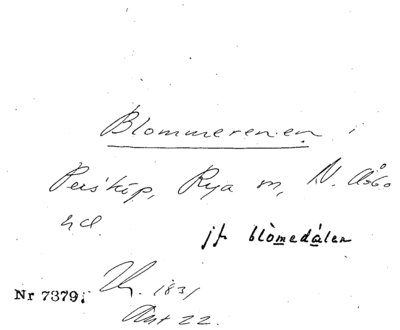 Blommerenen i
Perstorp, Rya m, N. Åsbo
hd.
jf blòmedálen
Nr 7379. 1831
Akt 22.